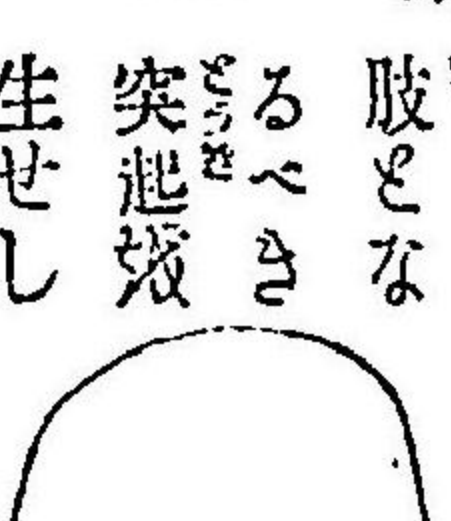 肢とな
るべき
とつき
突起發
生せし